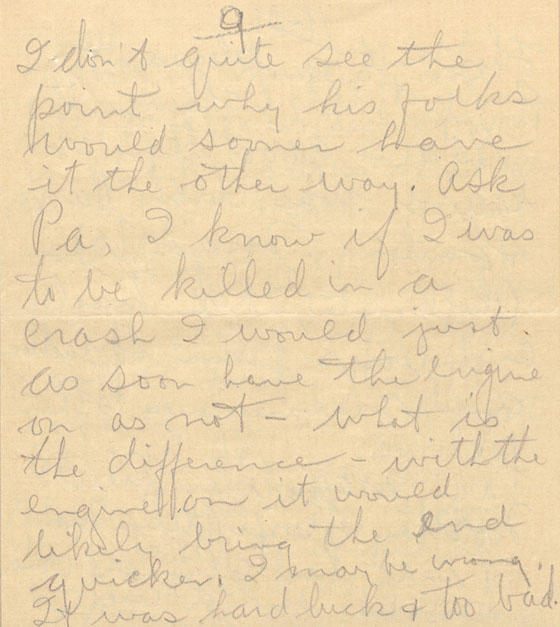 9
I don't quite see the
point why his folks
would sooner have
it the other way. Ask
Pa, I know if I was
to be killed in a
crash I would just
as soon have the engine
on as not - what is
the difference - with the
engine on it would
likely bring the end
quicker. I may be wrong.
It was hard luck & too bad.